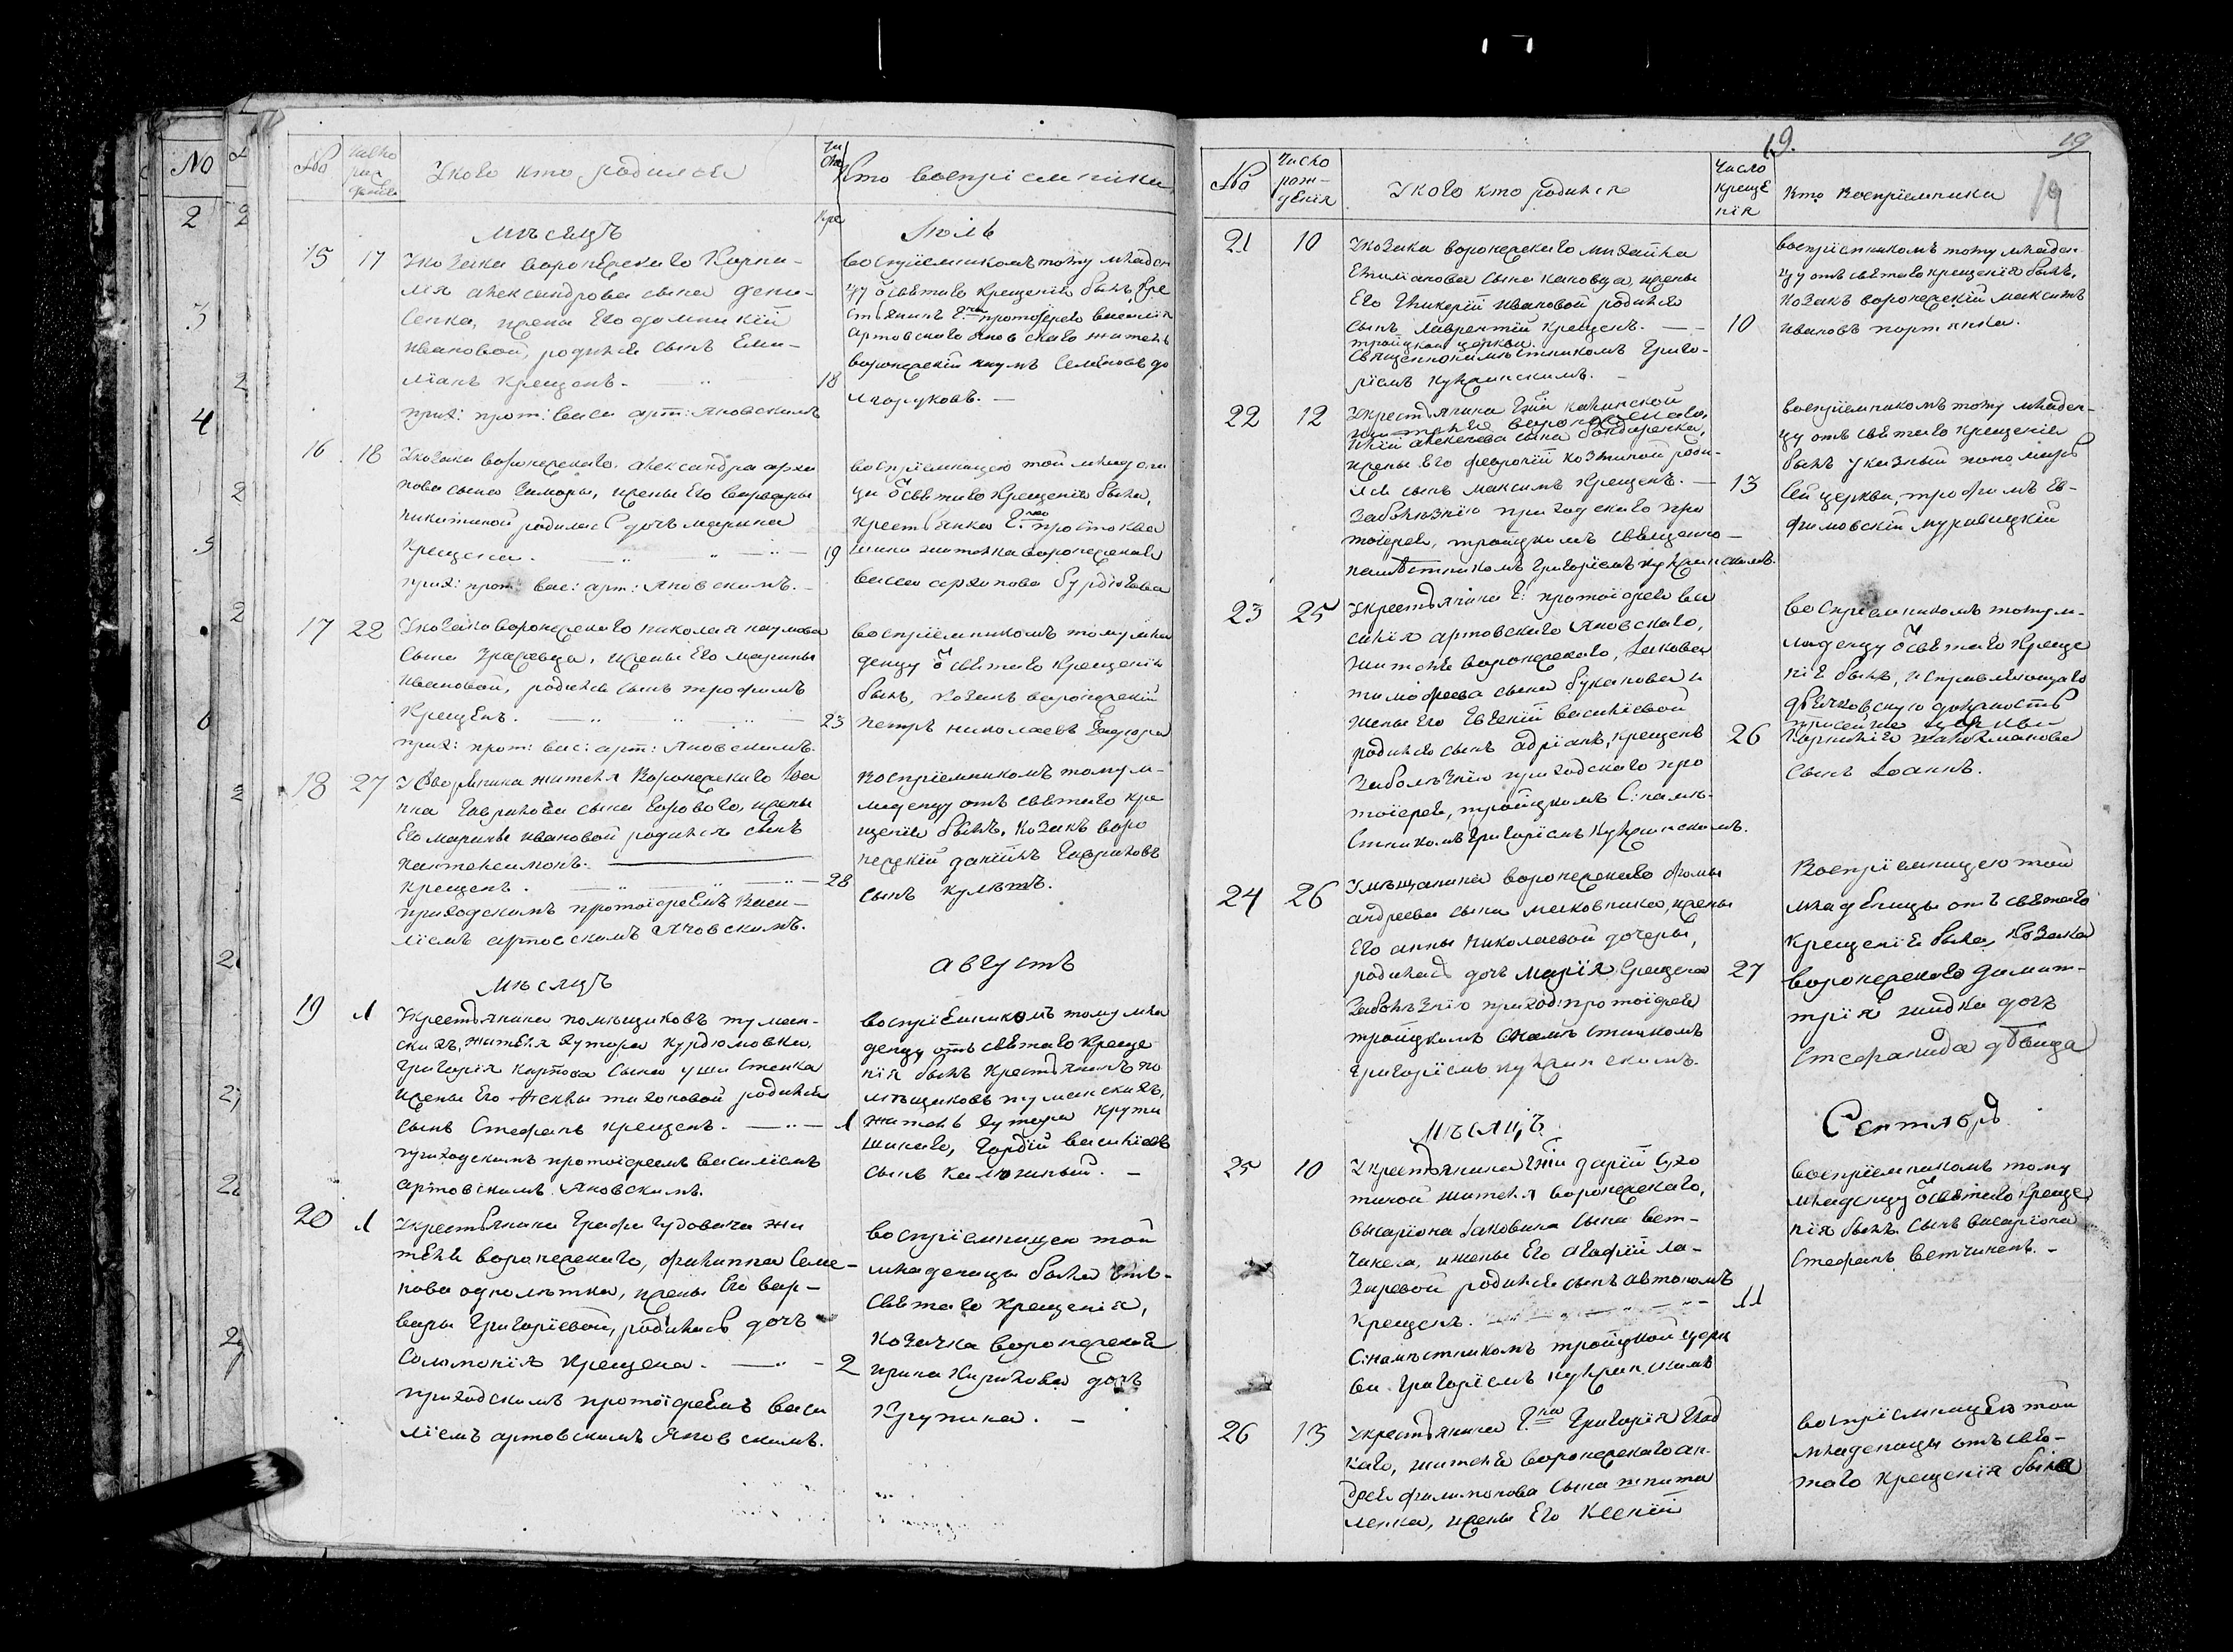 No
2
3
4
5
6
№
Число рождения
У кого кто родился
Кто восприемники
Мѣсяцъ
Іюль
15 17 У козака воронежскаго Корни-
лія александрова сына дени-
сенка, жены Его домникіи
ивановой, родился сынъ Еми-
ліанъ крещенъ. 18
прих: прот: васи арт: яновскимъ
воспріемникомъ тому младен
цу ѿ святаго крещенія былъ кре
стьянинъ Г.на протоіерея василія
артовскаго яновскаго житель
воронежскій наумъ Семеновъ до
лгоруковъ. —
16 18 У козака воронежскаго, александра архи
пова сына жены Его варвары
никитиной родилась дочь марина
крещена. 19
прих: прот: вас: арт: яновскимъ. —
воспріемницею той младени
ци ѿ святаго крещенія была,
крестьянка Г.на простоква
шина жителка воронежская
васса архипова
17 22 У козака воронежскаго николая наумова
сына жены Его марины
ивановой, родился сынъ трофимъ
крещенъ. 23
прих: прот: вас: арт: яновскимъ.
воспріемникомъ тому мла
денцу ѿ святаго крещенія
былъ, козакъ воронежскій
петръ николаевъ
18 27 У дворянина жителя воронежскаго іоа
нна гаврилова сына жены
Его марины ивановой родился сынъ
пантелеимонъ.
крещенъ. 28
приходскимъ протоіреемъ васи-
ліемъ артовскимъ яновскимъ.
воспріемникомъ тому м-
ладенцу отъ святаго кре
щенія былъ, козакъ воро
нежскій даніилъ гавриловъ
сынъ
Мѣсяцъ
августъ
19 1 У крестьянина помѣщиковъ туман-
скихъ, жителя хутора курдюмовки,
григорія карпова сына
жены Его тихоновой родился
сынъ Стефанъ крещенъ. 1
приходскимъ протоіреемъ василіемъ
артовскимъ яновскимъ.
воспріемникомъ тому мла
денцу отъ святаго креще
нія былъ крестьянинъ по
мѣщиковъ туманскихъ,
житель хутора
гордій василіевъ
сынъ
20 1 У крестьянина графа гудовича жи
теля воронежскаго, филиппа семе-
нова однолѣтка, жены Его вар-
вары григоріевой, родилась дочь
соломонія крещена. 2
приходскимъ протоіреемъ васи
ліемъ артовскимъ яновскимъ.
воспріемницею той
младеницы была отъ
святаго крещенія,
козачка воронежская
ирина кирилова дочь
крупина. —
19.
19
19
№
Число рож-
денія
У кого кто родился
Число
креще
нія
Кто воспріемники
21 10 У козака воронежскаго михайла
Емиліанова сына жены
Его гликеріи ивановой родился
сынъ лаврентій крещенъ. — 10
троицкой церкви.
священнонамѣстникомъ григо-
ріемъ кукринскимъ. —
воспріемникомъ тому младен
цу отъ святаго крещенія былъ,
козакъ воронежскій максимъ
ивановъ
22 12 У крестьянина калинской
жителя воронежскаго,
алексеева сына бондаренка,
жены Его февроніи козминой роди-
лся сынъ максимъ крещенъ. — 13
заболѣзнію приходскаго про
тоіерея, троицкимъ священно-
намѣстникомъ григоріемъ кукринскимъ.
воспріемникомъ тому младен-
цу отъ святаго крещенія
былъ указный пономарь
сей церкви, трофимъ ев-
фимовскій муравицкій
23 25 У крестьянина Г: протоіерея ва
силія артовскаго яновскаго,
жителя воронежскаго, іакова
тимофеева сына буканова и
жены его Евгеніи василіевой
родился сынъ адріанъ, крещенъ 26
заболѣзнію приходскаго про
тоіерея, троицкимъ С:намѣ-
стникомъ григоріемъ кукринскимъ.
воспріемникомъ тому м-
ладенцу ѿ святаго креще
нія былъ, исправляющаго
дьячковскую должность
при сей церкви
сынъ іоаннъ.
24 26 У мѣщанина воронежскаго фомы
андреева сына жены
Его анны николаевой дочеры,
родилась дочь марія крещена 27
заболѣзнію приход: протоіерея
троицкимъ С:намѣстникомъ
григоріемъ кукринскимъ.
Воспріемницею той
младеницы отъ святаго
крещенія была, козака
воронежскаго димит-
рія дочь
стефанида дѣвица
Мѣсяцъ.
Сентябрь
25 10 У крестьянина Г:жи даріи
жителя воронежскаго,
висаріона іаковина сына вет-
чинена, и жены Его агафіи ла-
заревой родился сынъ автономъ
крещенъ. 11
С:намѣстникомъ троицкой церк
ви григоріемъ кукринскимъ
воспріемникомъ тому
младенцу ѿ святаго креще
нія былъ сынъ висаріона
стефанъ ветчиненъ. —
26 13 У крестьянина Г.на григорія
жителя воронежскаго ан-
дрея филимонова сына
жены Его ксеніи
воспріемницею той
младеницы отъ свя-
таго крещенія была